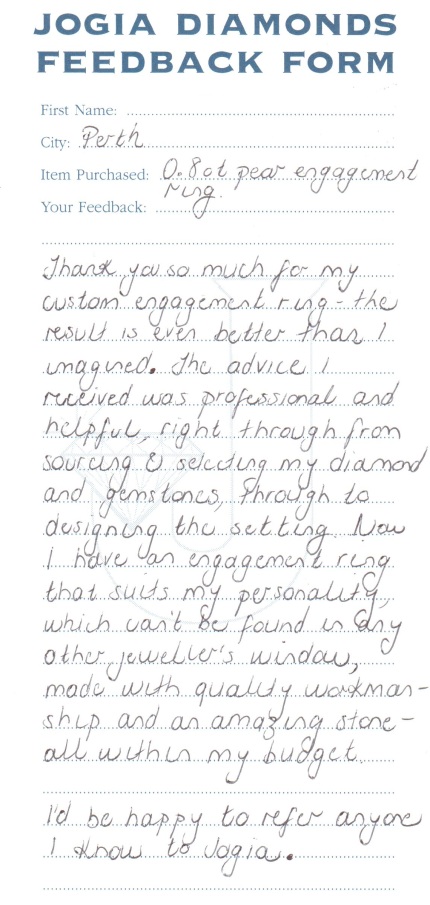 JOGIA DIAMONDS
FEEDBACK FORM
First Name:
City: Perth
Item Purchased: 0.8ct pear engagement
ring.
Your Feedback:
Thank you so much for my
custom engagement ring - the
result is even better than I
imagined. The advice I
received was professional and
helpful, right through from
sourcing & selecting my diamond
and gemstones, through to
designing the setting. Now
I have an engagement ring
that suits my personality,
which can't be found in any
other jeweller's window,
made with quality workman-
ship and an amazing stone -
all within my budget.
I'd be happy to refer anyone
I know to Jogia.